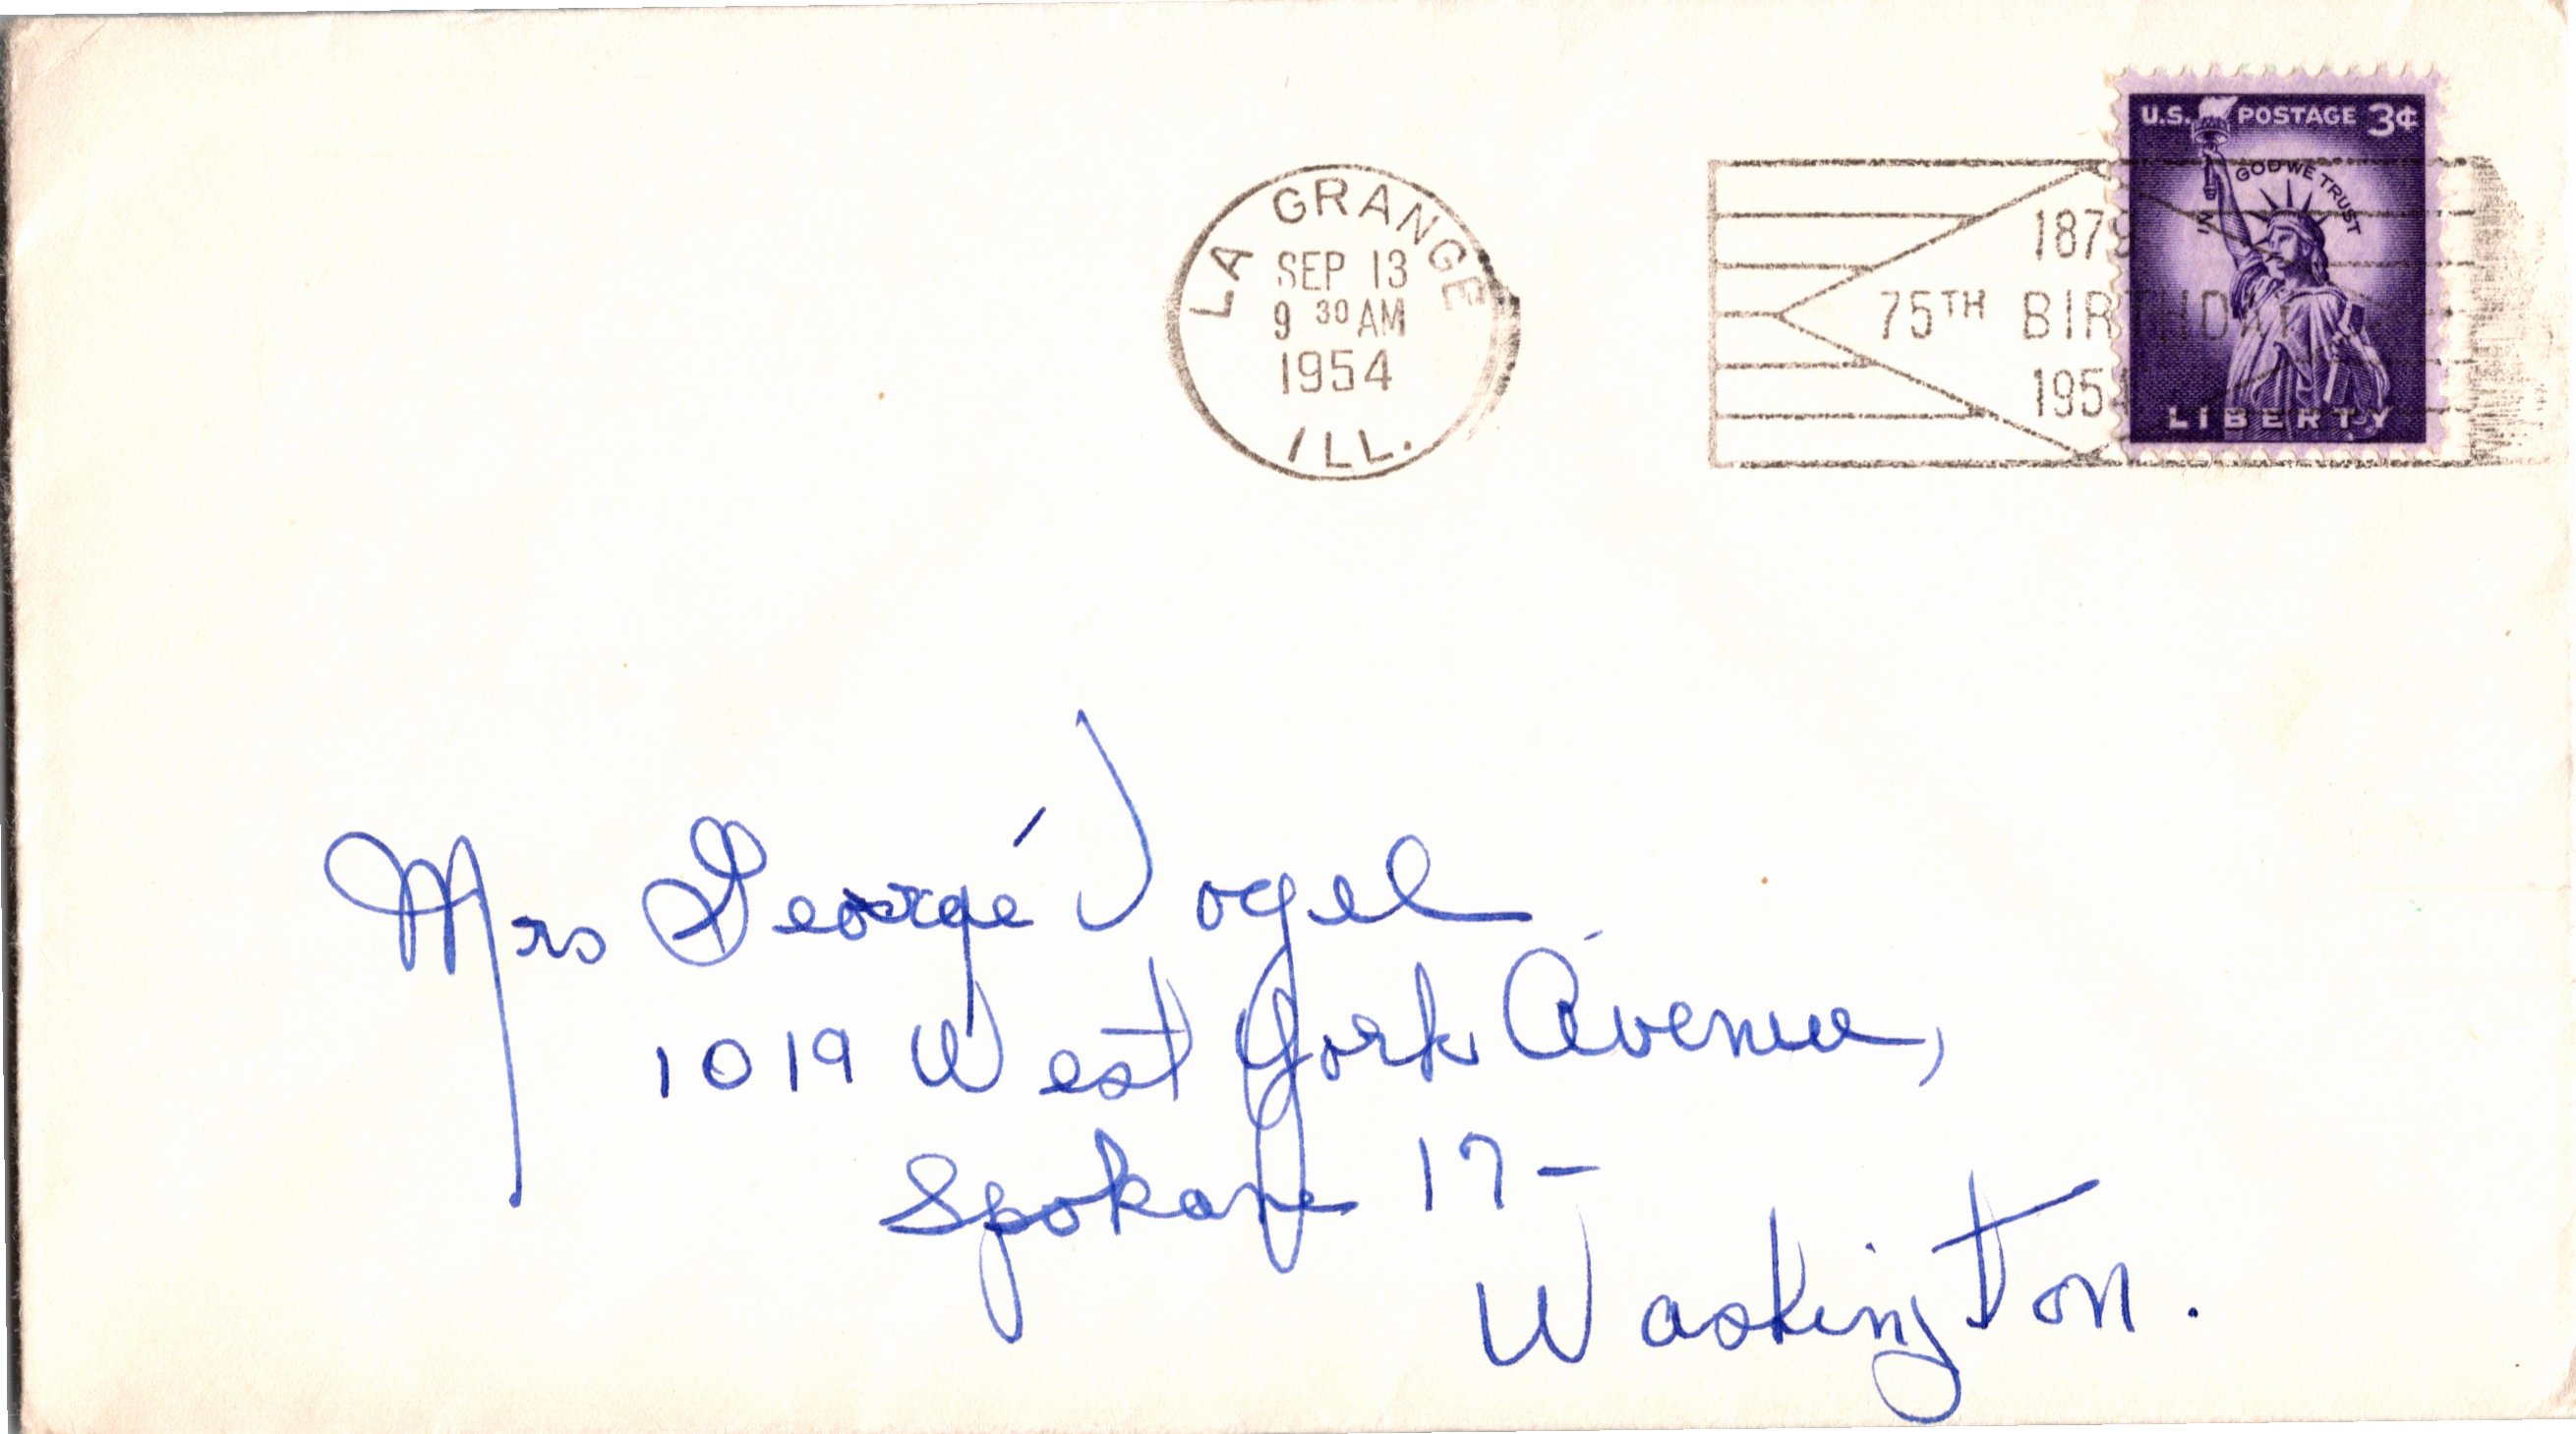 U.S. POSTAGE 3¢
IN GOD WE TRUST
LIBERTY
LA GRANGE
SEP 13
9 30 AM
1954
ILL.
1879
75TH BIRTHDAY
1954
Mrs George Vogel
1019 West York Avenue,
Spokane 17-
Washington.